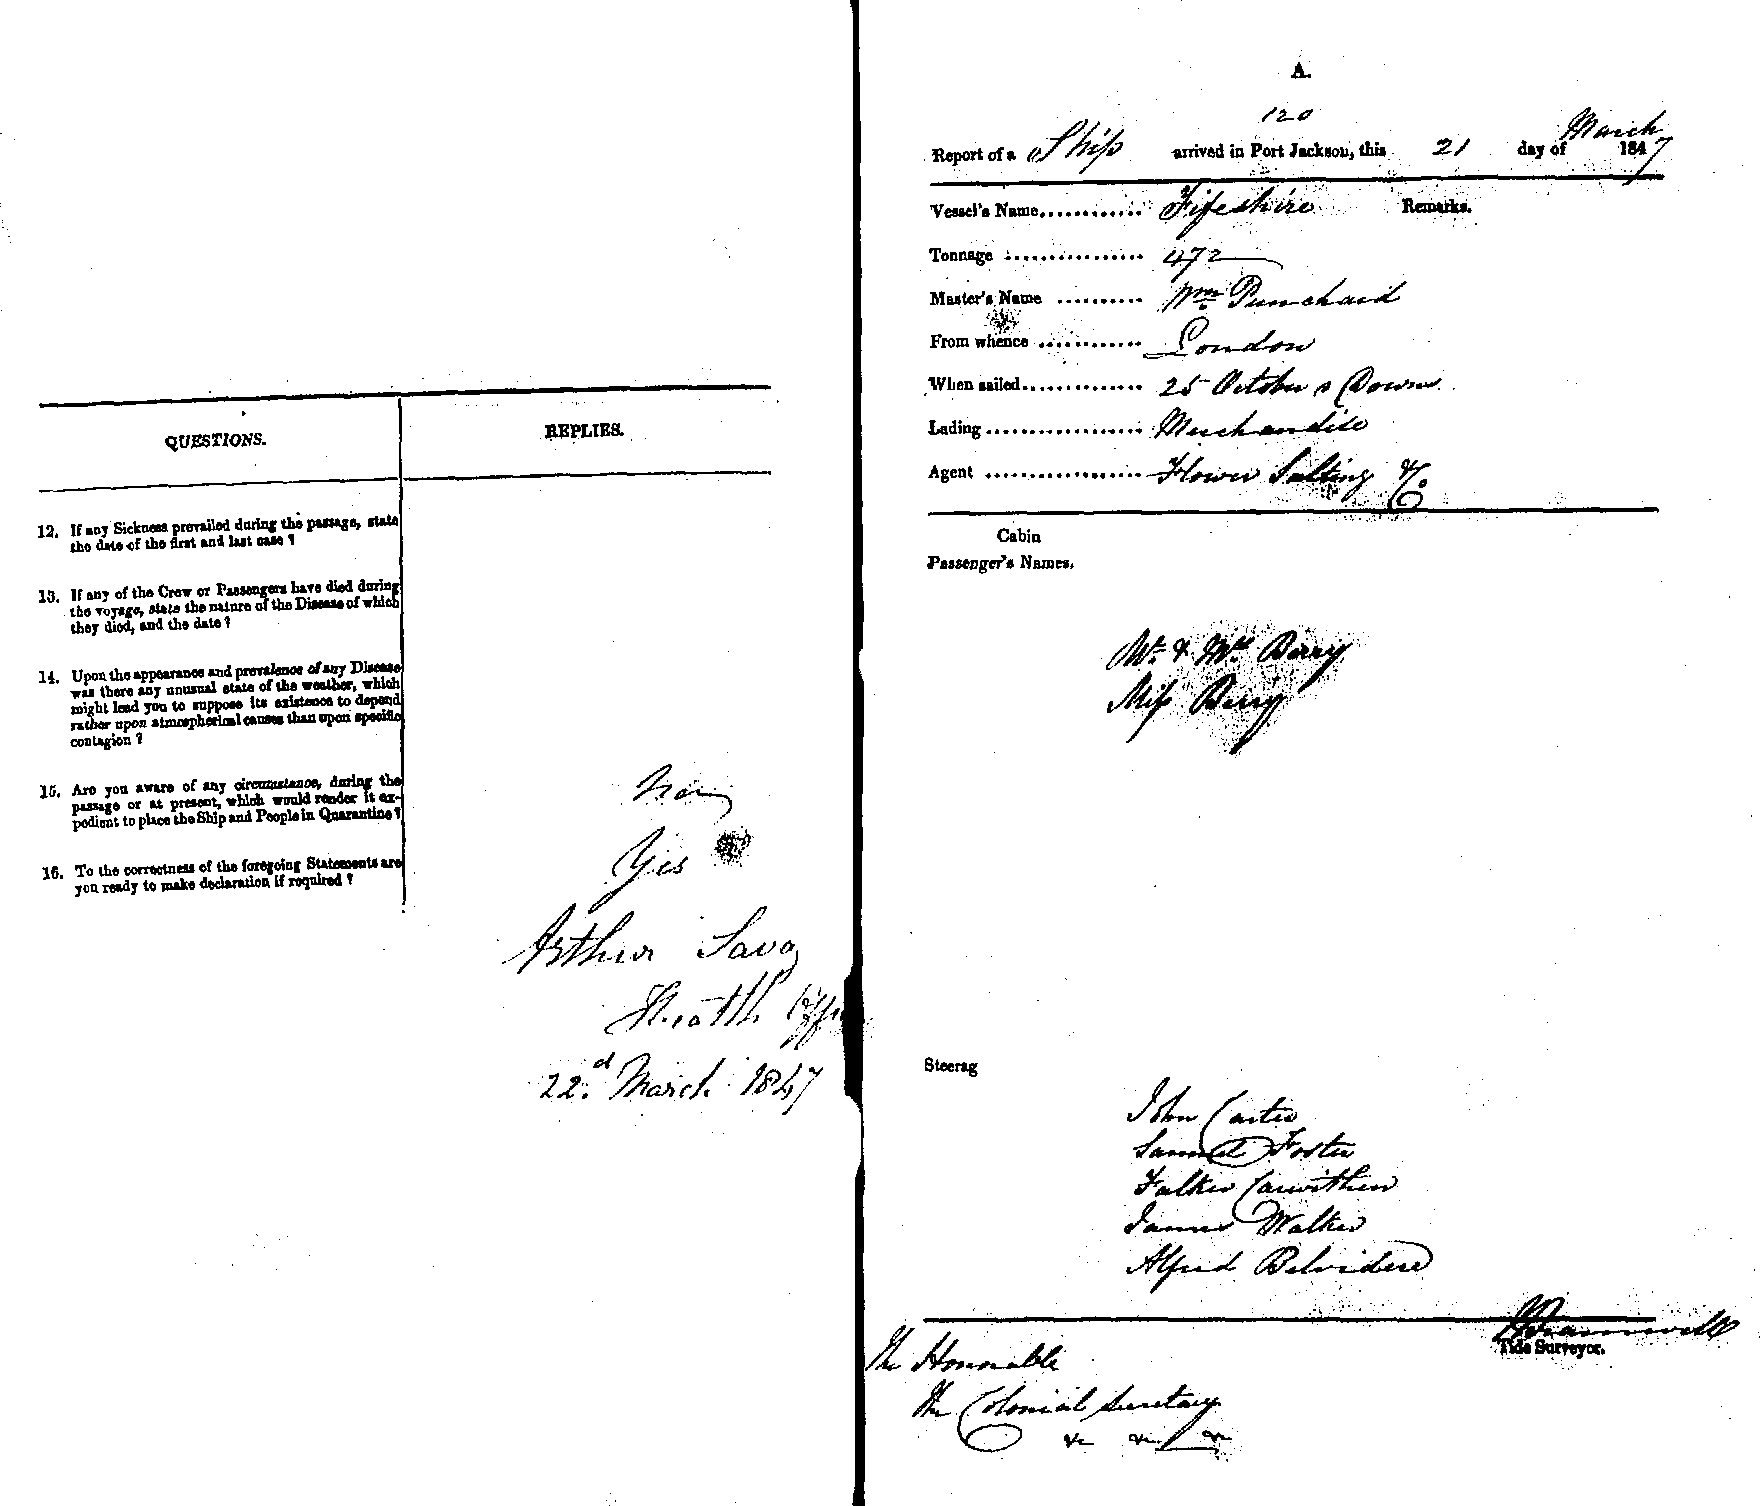 QUESTIONS.
REPLIES.
12. If any Sickness prevailed during the passage, state
the date of the first and last case?
13. If any of the Crew or Passengers have died during
the voyage, state the nature of the Disease of which
they died, and the date?
14. Upon the appearance and prevalence of any Disease
was there any unusual state of the weather, which
might lead you to suppose its existence to depend
rather upon atmospherical causes than upon specific
contagion?
15. Are you aware of any circumstance, during the
passage or at present, which would render it ex-
pedient to place the Ship and People in Quarantine?
16. To the correctness of the foregoing Statements are
you ready to make declaration if required?
Yes
Arthur Savag
Health Offi
22.d March 1847
A.
120
Report of a Ship arrived in Port Jackson, this 21 day of March 1847
Vessel's Name............ Fifeshire Remarks.
Tonnage ................ 472
Master's Name .......... Wm Punchard
From whence ............ London
When sailed.............. 25 October Downs
Lading .................. Merchandise
Agent .................. Flower Salting & Co
Cabin
Passenger's Names.
Mr. & Mrs Berry
Miss Berry
Steerag
John Carter
Samuel Foster
Falker Carwithen
James Walker
Alfred Belvidere
Tide Surveyor.
The Honorable
The Colonial Secretary
&c &c &c